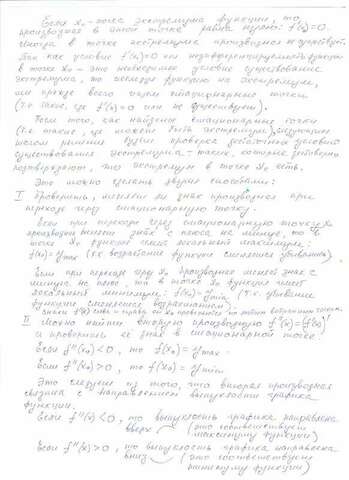 Если x₀ - точка экстремума функции, то
производная в этой точке равна нулю: f'(x₀)=0.
Иногда в точке экстремума производная не существует.
Так как условие f'(x₀)=0 или недифференцируемость функции
в точке x₀ - это необходимое условие существования
экстремума, то исследуя функцию на экстремум,
мы прежде всего ищем стационарные точки
(т.е. такие, где f'=0 или не существует).
После того, как найдены стационарные точки
(т.е. такие, где может быть экстремум), следующим
шагом решения будет проверка достаточных условий
существования экстремума - таких, которые действительно
подтверждают, что экстремум в точке x₀ есть.
Это можно сделать двумя способами:
I Проверить, меняет ли знак производная при
переходе через стационарную точку.
Если при переходе через стационарную точку x₀
производная меняет знак с плюса на минус, то в
точке x₀ функция имеет локальный максимум:
f(x₀) = y max (т.к. возрастание функции сменяется убыванием)
Если при переходе через x₀ производная меняет знак с
минуса на плюс, то в точке x₀ функция имеет
локальный минимум: f(x₀) = y min (т.к. убывание
функции сменяется возрастанием).
знаки f'(x) слева и справа от x₀ проверяются по любым выбранным точкам.
II Можно найти вторую производную f''(x) = (f'(x))'
и проверить её знак в стационарной точке
Если f''(x₀) < 0, то f(x₀) = y max.
Если f''(x₀) > 0, то f(x₀) = y min
Это следует из того, что вторая производная
связана с направлением выпуклости графика
функции.
Если f''(x) < 0, то выпуклость графика направлена
вверх (это соответствует
максимуму функции)
Если f''(x) > 0, то выпуклость графика направлена
вниз (это соответствует
минимуму функции)